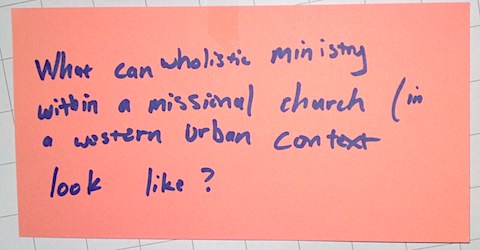 What can wholistic ministry
within a missional church (in
a western urban context
look like?